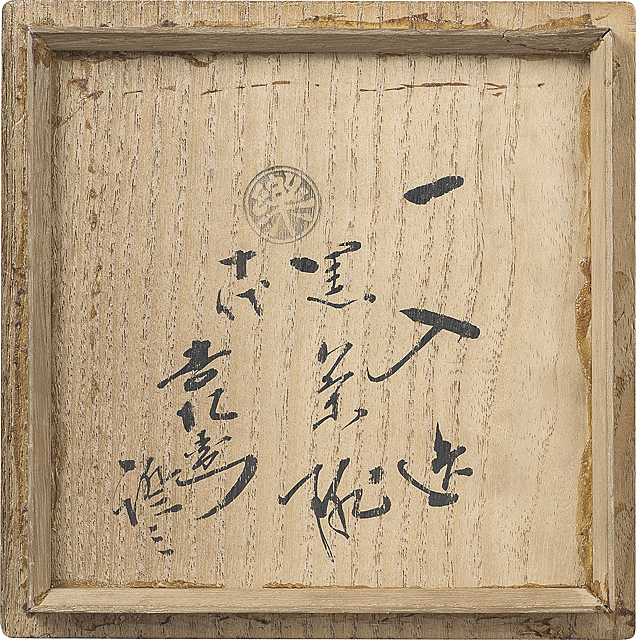 一入造
黒茶碗
樂
十代
吉左衛門
證之